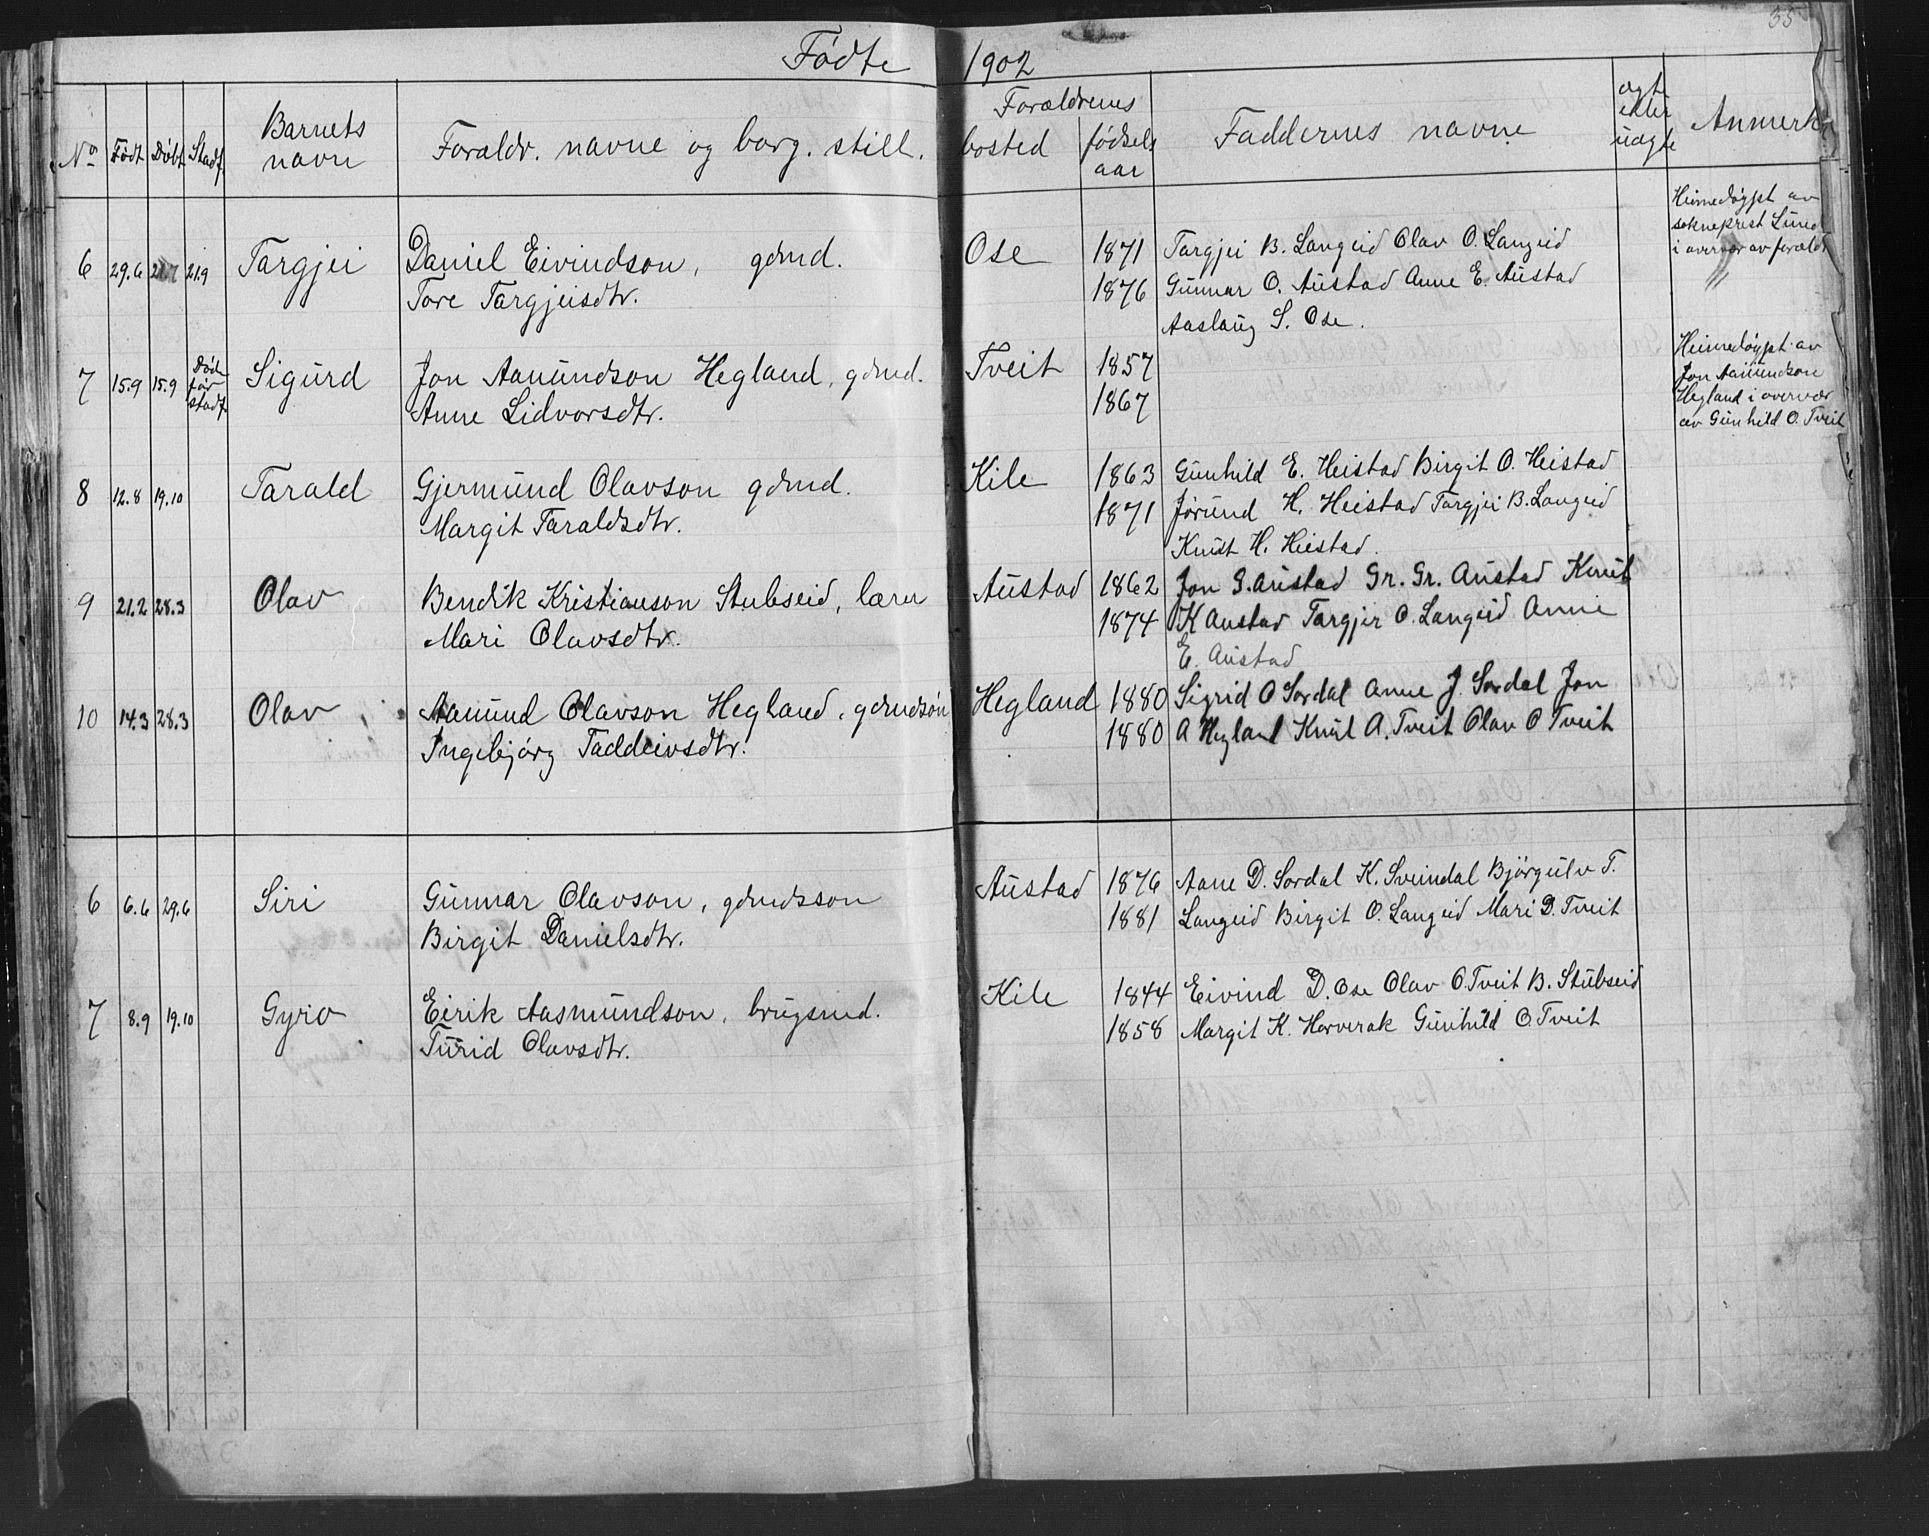 35
Fødte 1902
No Født Døbt Stadf. Barnets navn Foraldr. navne og borg. still. Forældrenes bosted fødsels aar Faddernes navne ægte eller uægte Anmerk
6 29.6 21.7 21.9 Targjei Daniel Eivindson, gdmd. Ose 1871 Targjei B. Langeid Olav O. Langeid Heimedøypt av
Tore Targjeisdtr. 1876 Gunnar O. Austad Anne E. Austad sokneprest Lund
Aaslaug S. Ose. i overvær av foræld
7 15.9 15.9 Død før stadf. Sigurd Jon Aamundson Hegland, gdmd. Tveit 1857 Heimedøypt av
Anne Lidvorsdtr. 1867 Jon Aamundson
Hegland i overvær
av Gunhild O. Tveit
8 12.8 19.10 Tarald Gjermund Olavson gdmd. Kile 1863 Gunhild E. Heistad Birgit O. Heistad
Margit Taraldsdtr. 1871 Jørund H. Heistad Targjei B. Langeid
Knut H. Heistad.
9 21.2 28.3 Olav Bendik Kristianson Stubseid, lærer Austad 1862 Jon G. Austad Gr. Gr. Austad Knut
Mari Olavsdtr. 1874 K Austad Targjei O. Langeid Anne
E. Austad
10 14.3 28.3 Olav Aamund Olavson Hegland, gdmdsøn Hegland 1880 Sigrid O Sordal Anne J. Sordal Jon
Ingebjørg Taddeivsdtr. 1880 A Hegland Knut A. Tveit Olav O Tveit
6 6.6 29.6 Siri Gunnar Olavson, gdmdsson Austad 1876 Aane D. Sordal K. Sveindal Bjørgulv T.
Birgit Danielsdtr. 1881 Langeid Birgit O. Langeid Mari D. Tveit
7 8.9 19.10 Gyro Eirik Aasmundson, brugsmd. Kile 1844 Eivind D. Ose Olav O. Tveit B. Stubseid
Turid Olavsdtr. 1858 Margit K. Horverak Gunhild O. Tveit